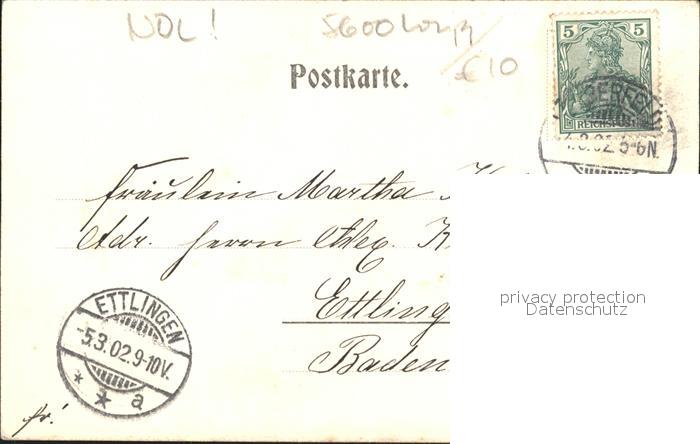 NDL!
5600
€10
Postkarte.
5 5
REICHSPOST
4.3.02 5-6N.
Fräulein Martha
Adr. Herrn Alex. K
Ettling
Baden
privacy protection
Datenschutz
ETTLINGEN
-5.3.02.9-10V.
* * a
fr!